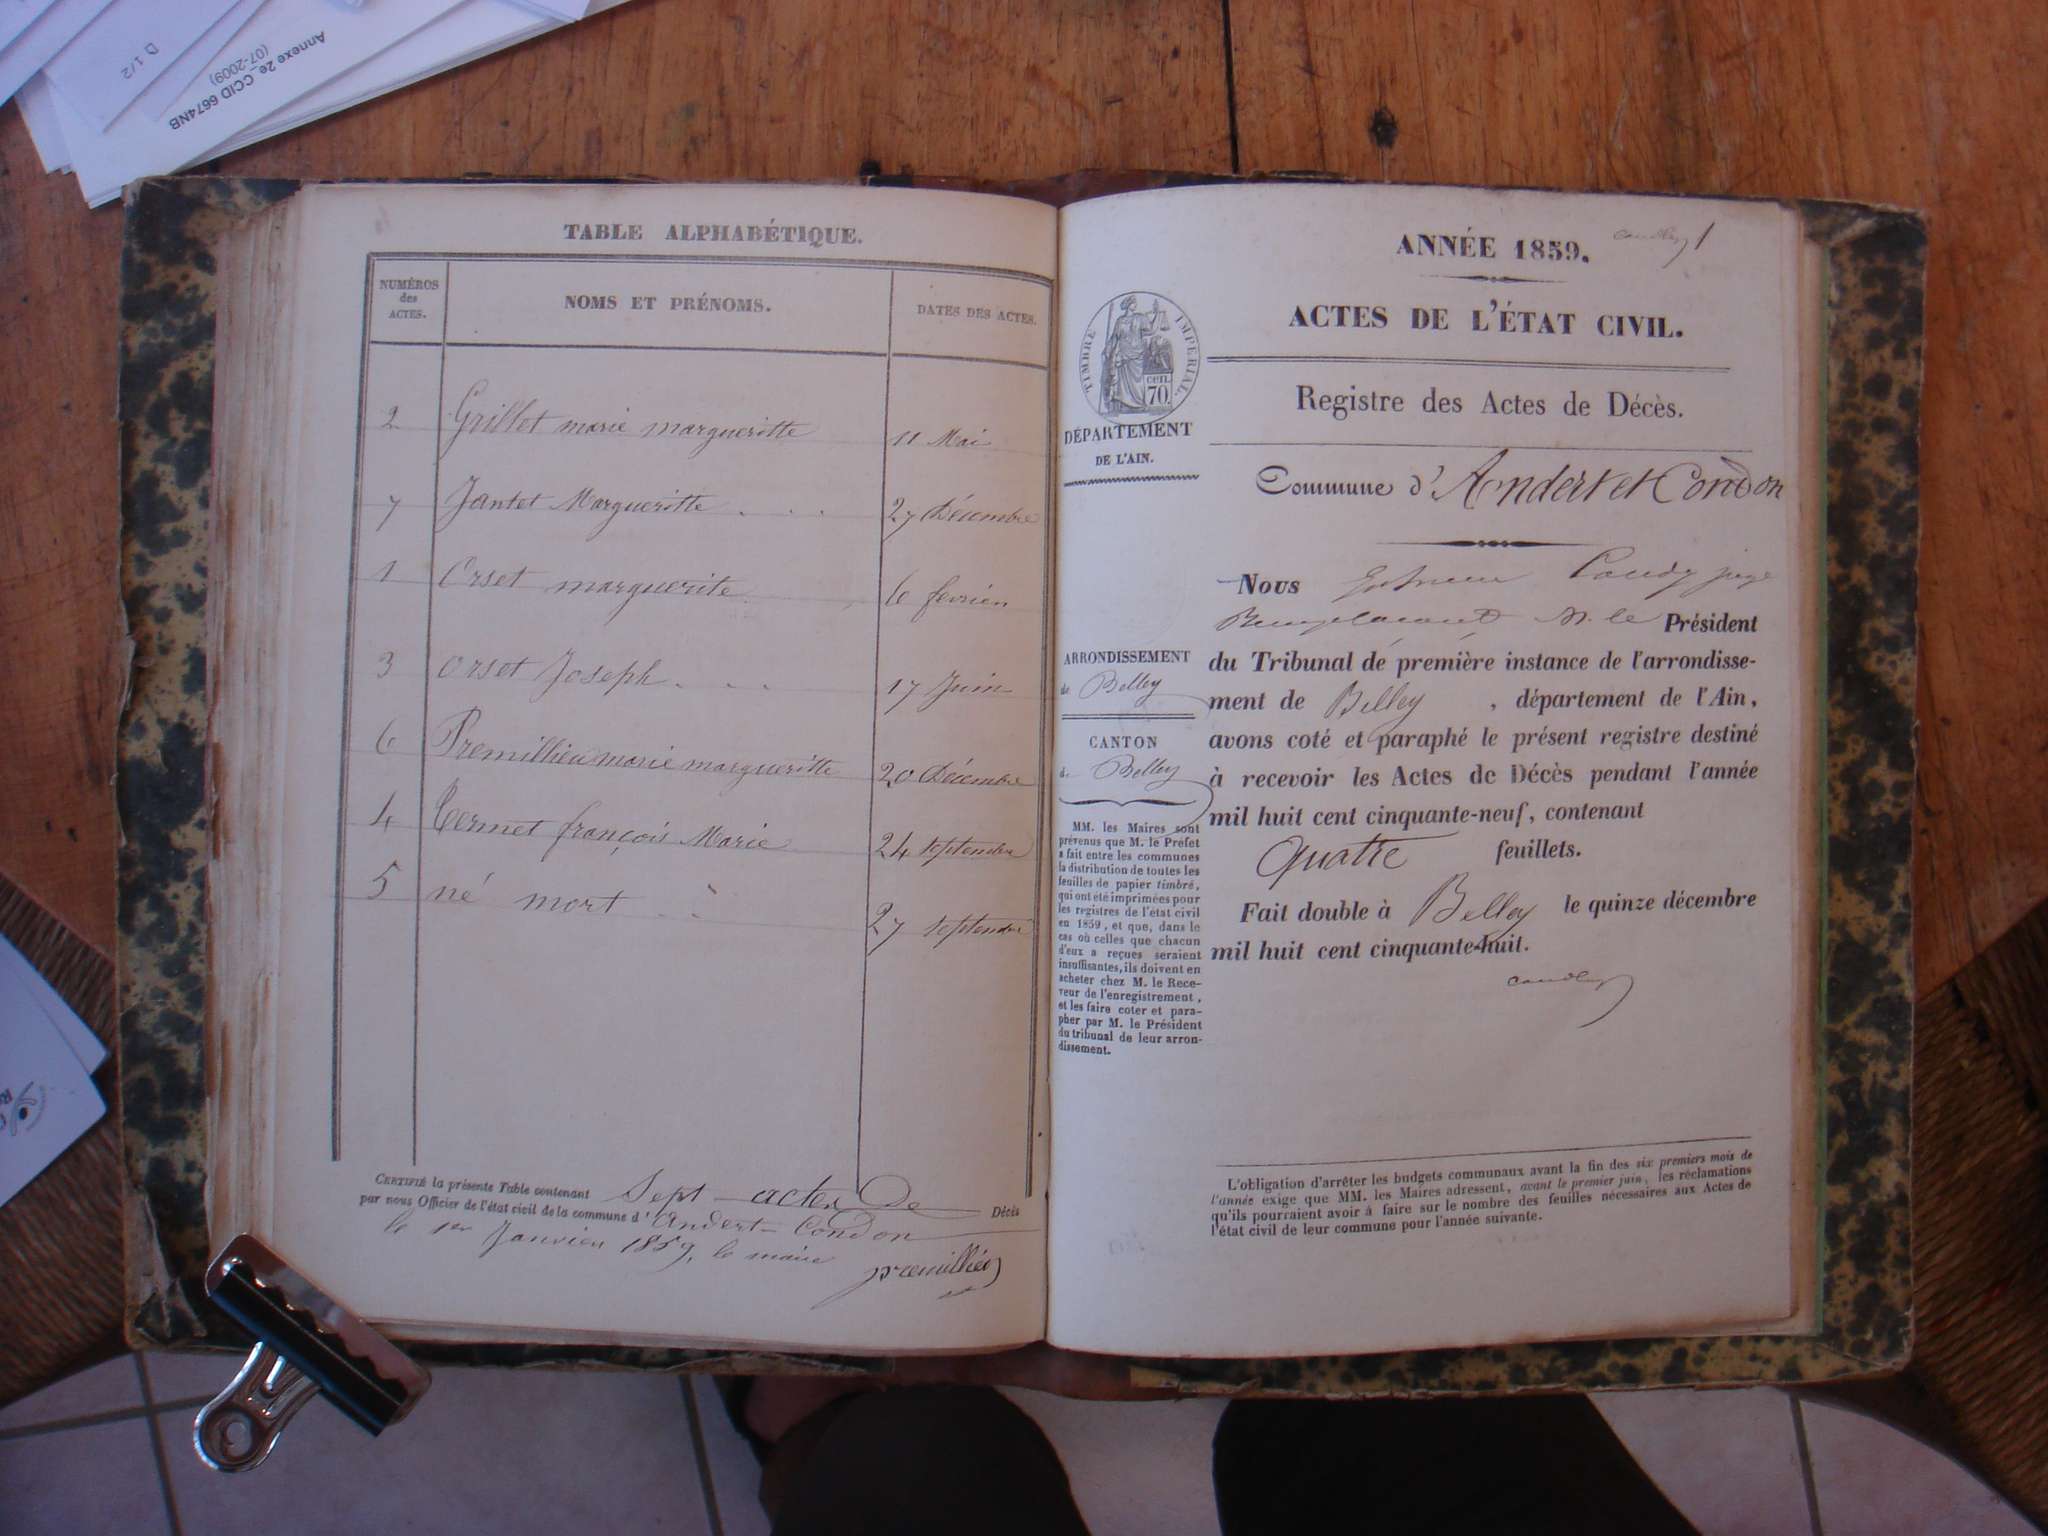 Annexe 2e_CCID 6674NB
(07-2009)
D 1/2
TABLE ALPHABÉTIQUE.
NUMÉROS des ACTES. NOMS ET PRÉNOMS. DATES DES ACTES.
2 Grillet marie margueritte 11 Mai
7 Jantet Margueritte 27 Décembre
1 Orset marguerite 6 fevrier
3 Orset Joseph 17 Juin
6 Premillieu marie margueritte 20 Décembre
4 Termet françois Marie 24 septembre
5 né mort 27 septembre
CERTIFIÉ la présente Table contenant Sept actes De Décès
par nous Officier de l'état civil de la commune d'Andert-Condon
le 1er Janvier 1859, le maire
premillieu
1
ANNÉE 1859.
ACTES DE L'ÉTAT CIVIL.
Registre des Actes de Décès.
Commune d'Andert et Condon
TIMBRE IMPÉRIAL
cen. 70.
DÉPARTEMENT
DE L'AIN.
ARRONDISSEMENT
de Belley
CANTON
de Belley
MM. les Maires sont
prévenus que M. le Préfet
a fait entre les communes
la distribution de toutes les
feuilles de papier timbré,
qui ont été imprimées pour
les registres de l'état civil
en 1859, et que, dans le
cas où celles que chacun
d'eux a reçues seraient
insuffisantes, ils doivent en
acheter chez M. le Rece-
veur de l'enregistrement,
et les faire coter et para-
pher par M. le Président
du tribunal de leur arron-
dissement.
Nous juge
Remplacant M. le Président
du Tribunal de première instance de l'arrondisse-
ment de Belley, département de l'Ain,
avons coté et paraphé le présent registre destiné
à recevoir les Actes de Décès pendant l'année
mil huit cent cinquante-neuf, contenant
Quatre feuillets.
Fait double à Belley le quinze décembre
mil huit cent cinquante-huit.
L'obligation d'arrêter les budgets communaux avant la fin des six premiers mois de
l'année exige que MM. les Maires adressent, avant le premier juin, les réclamations
qu'ils pourraient avoir à faire sur le nombre des feuilles nécessaires aux Actes de
l'état civil de leur commune pour l'année suivante.